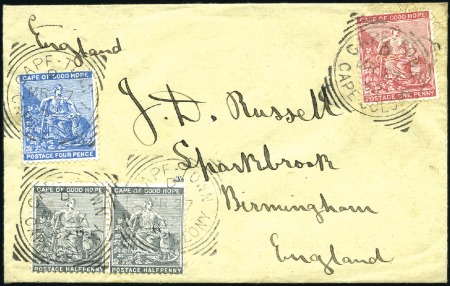 England
CAPE OF GOOD HOPE
POSTAGE ONE PENNY
CAPE OF GOOD HOPE
POSTAGE FOUR PENCE
J. D. Russell
Sparkbrook
Birmingham
England
CAPE OF GOOD HOPE
POSTAGE HALF PENNY
CAPE OF GOOD HOPE
POSTAGE HALF PENNY